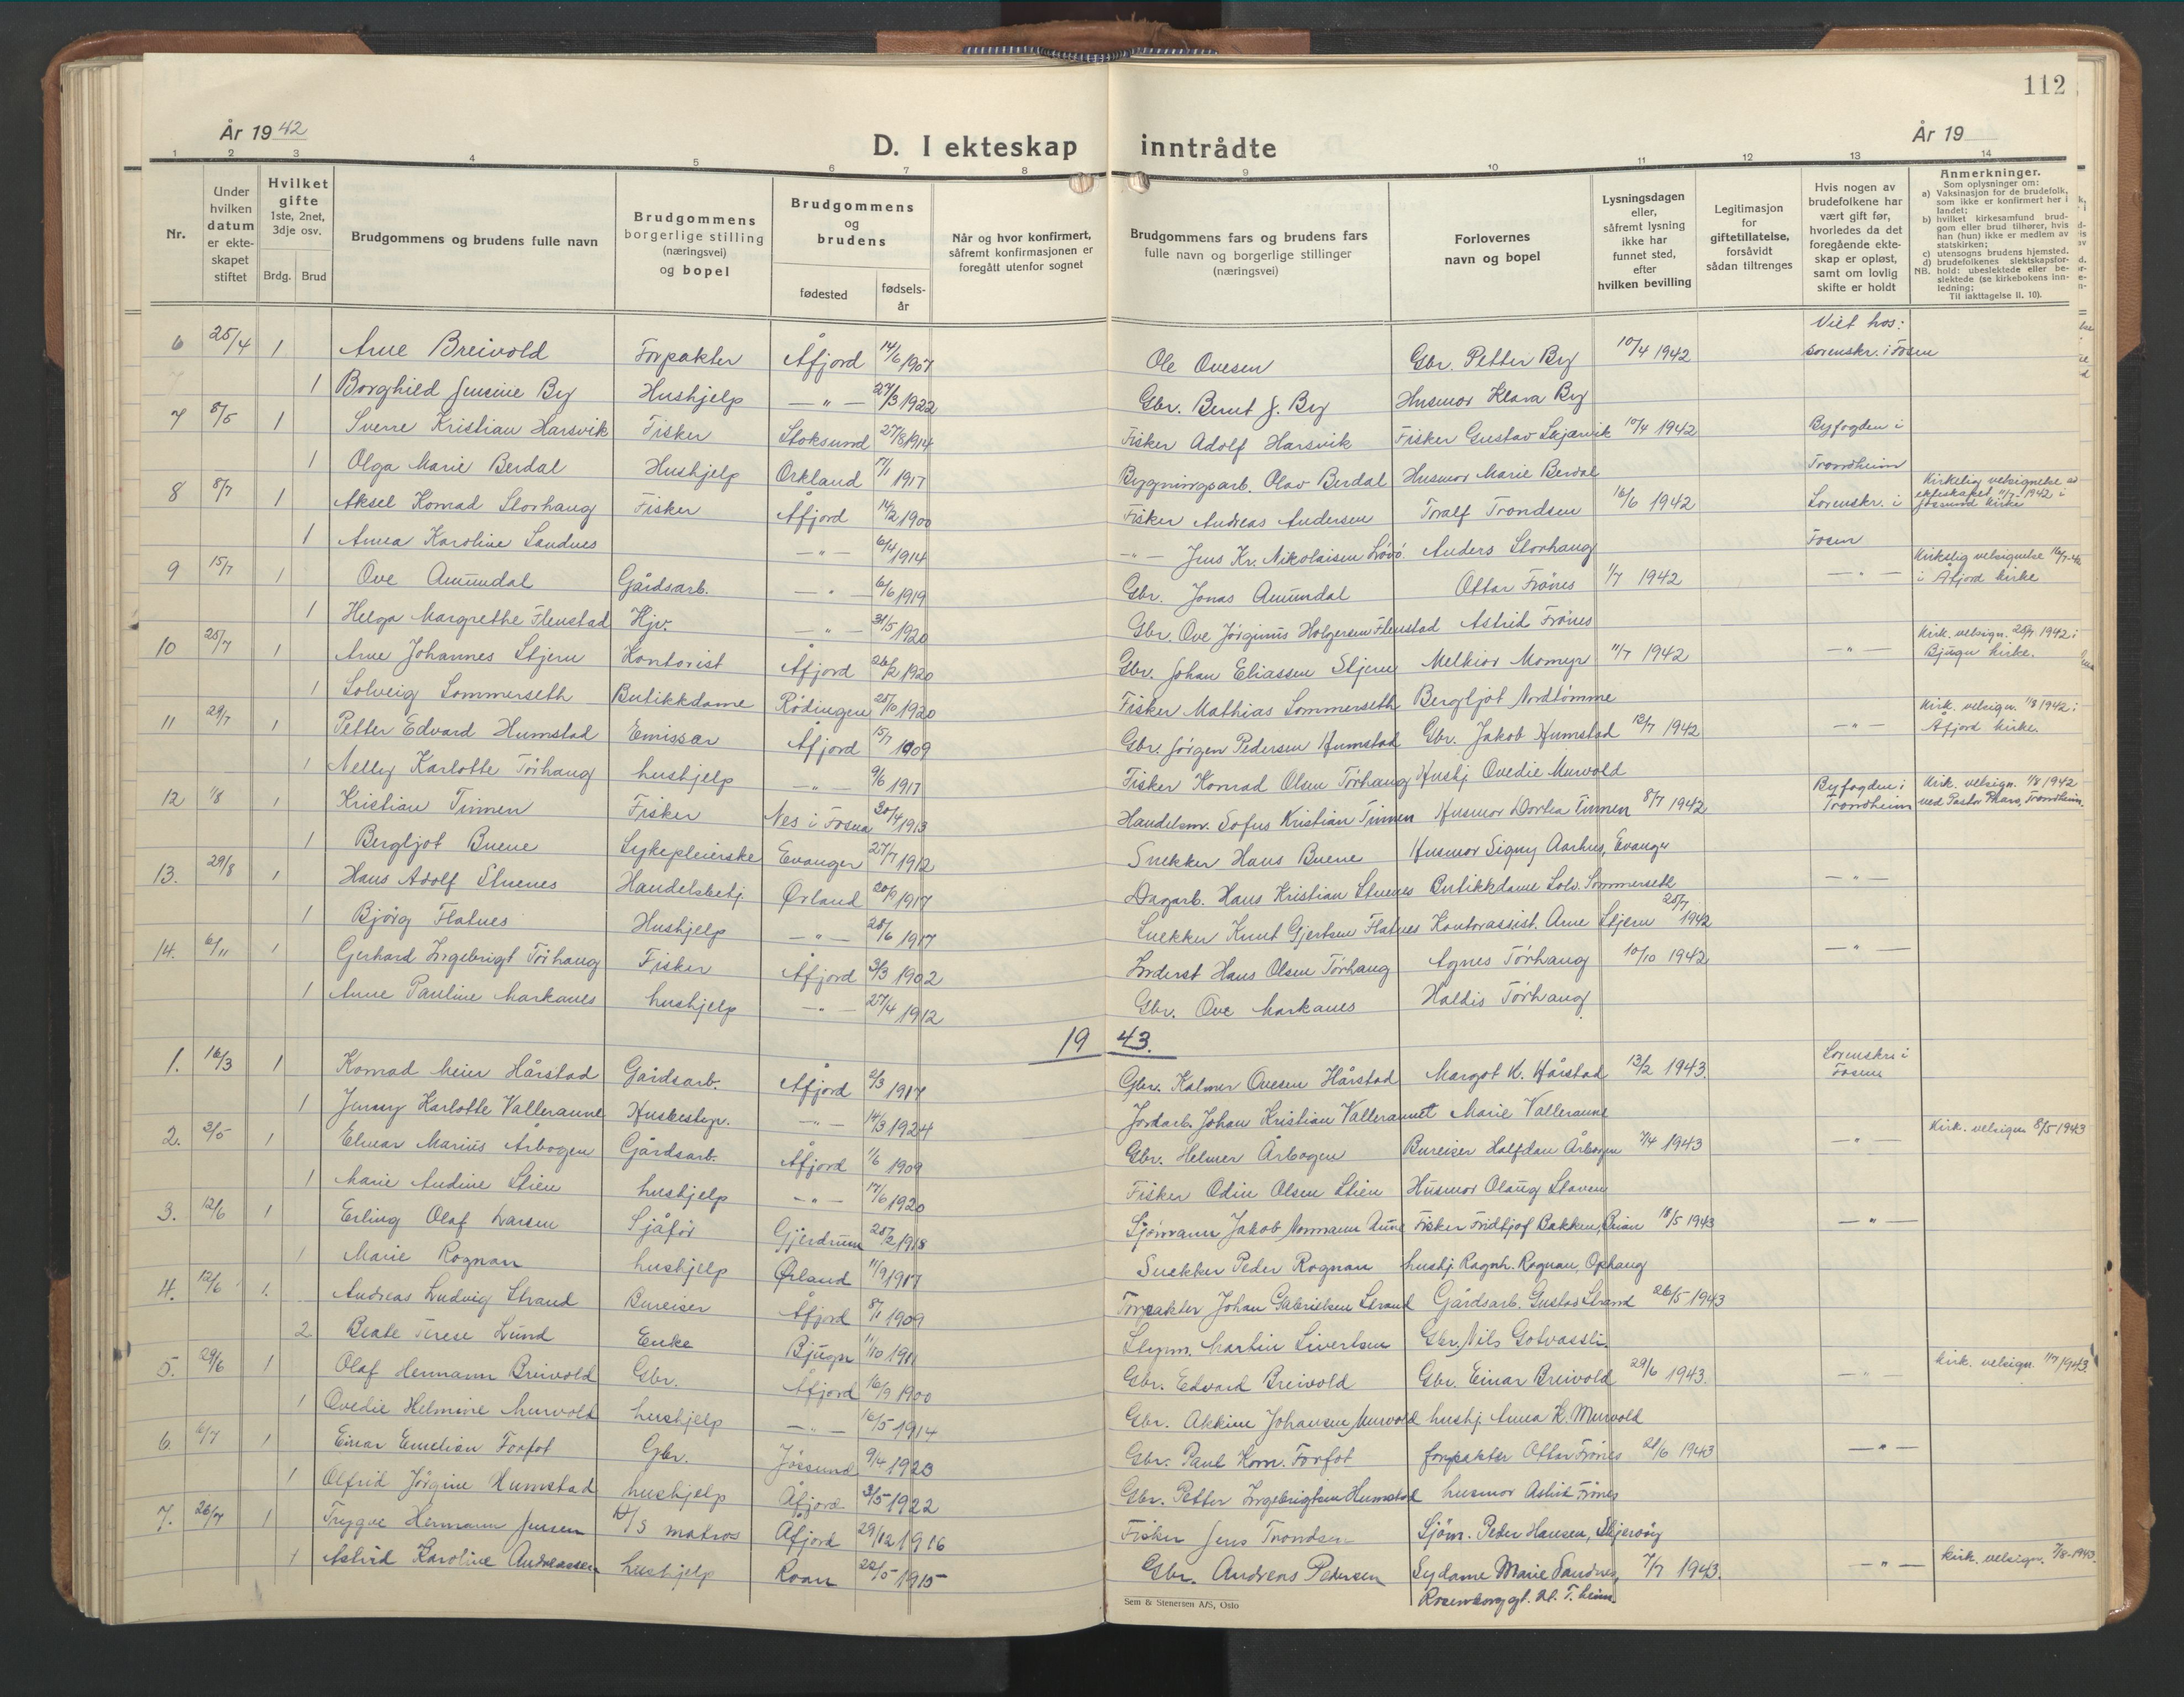 112
År 1942
D. I ekteskap inntrådte
År 19
1 2 3 4 5 6 7 8 9 10 11 12 13 14
Nr.
Under hvilken datum er ekteskapet stiftet
Hvilket gifte 1ste, 2net, 3dje osv.
Brdg. Brud
Brudgommens og brudens fulle navn
Brudgommens borgerlige stilling (næringsvei) og bopel
Brudgommens og brudens
fødested
fødselsår
Når og hvor konfirmert, såfremt konfirmasjonen er foregått utenfor sognet
Brudgommens fars og brudens fars fulle navn og borgerlige stillinger (næringsvei)
Forlovernes navn og bopel
Lysningsdagen eller, såfremt lysning ikke har funnet sted, efter hvilken bevilling
Legitimasjon for giftetillatelse, forsåvidt sådan tiltrenges
Hvis nogen av brudefolkene har vært gift før, hvorledes da det foregående ekteskap er opløst, samt om lovlig skifte er holdt
Anmerkninger.
Som oplysninger om:
a) Vaksinasjon for de brudefolk, som ikke er konfirmert her i landet;
b) hvilket kirkesamfund brudgom eller brud tilhører, hvis han (hun) ikke er medlem av statskirken;
c) utensogns brudens hjemsted.
d) brudefolkenes slektskapsforhold: ubeslektede eller beslektede (se kirkebokens innledning:
NB.
Til iakttagelse II. 10).
Viet hos:
6 25/4 1 Arne Breivold Forpakter Åfjord 14/6 1907 Ole Ovesen Gbr. Petter By 10/4 1942 Sorenskr. i Fosen
1 Borghild Jensine By Hushjelp —"— 27/3 1922 Gbr. Bernt J. By Husmor Klara By
7 8/5 1 Sverre Kristian Harsvik Fisker Stoksund 27/8 1914 Fisker Adolf Harsvik Fisker Gustav Skjærvik 10/4 1942 Byfogden i
1 Olga Marie Berdal Hushjelp Orkland 17/1 1917 Bygningsarb. Olav Berdal Husmor Marie Berdal Trondheim
8 8/7 1 Aksel Konrad Storhaug Fisker Åfjord 14/2 1900 Fisker Andreas Andersen Toralf Trondsen 16/6 1942 Sorenskr. i Kirkelig velsignelse av ekteskapet 11/7-1942 i Jøssund kirke
1 Anna Karoline Sandnes —"— 6/4 1914 —"— Jens Kr. Nikolaisen Anders Storhaug Fosen
9 15/7 1 Ove Amundal Gårdsarb. —"— 6/6 1919 Gbr. Jonas Amundal Ottar Frönes 1/7 1942 —"— Kirkelig velsignelse 16/7-42 i Åfjord kirke
1 Helga Margrethe Flenstad Hjv. —"— 31/5 1920 Gbr. Ove Jörginus Holgersen Flenstad Astrid Frönes
10 25/7 1 Arne Johannes Stjern Kontorist Åfjord 26/2 1920 Gbr. Johan Eliassen Stjern Melkior Momyr 11/7 1942 —"— Kirk. velsign. 26/7 1942 i Bjugn kirke.
1 Solveig Sommerseth Butikkdame Rödingen 25/10 1920 Fisker Mathias Sommerseth Bergljot Nordtömme
11 29/7 1 Petter Edvard Humstad Emissær Åfjord 15/7 1909 Gbr. Jörgen Pedersen Humstad Gbr. Jakob Humstad 13/7 1942 —"— Kirk. velsign. 1/8 1942 i Åfjord kirke.
1 Nelly Karlotte Törhaug hushjelp —"— 9/6 1917 Fisker Konrad Olsen Törhaug Hushj Ovedie Murvold
12 1/8 1 Kristian Tinnen Fisker Nes i Fosna 30/4 1913 Handelsm. Sofus Kristian Tinnen Husmor Dortea Tinnen 8/7 1942 Byfogden i Trondheim Kirk. velsign. 1/8 1942 ved Pastor Trondheim.
1 Bergljot Buene Sykepleierske Evanger 27/7 1912 Snekker Hans Buene Husmor Signy Aarhus, Evanger
13. 29/8 1 Hans Adolf Stuenes Handelsbetj. Ørland 1917 Dagarb. Hans Kristian Stuenes Butikkdame Solv. Sommerseth 25/7 1942 —"—
1 Björg Flatnes Hushjelp —"— 28/6 1917 Snekker Knut Gjertsen Flatnes Kontorassist. Arne Stjern
14. 6/11 1 Gerhard Ingebrigt Törhaug Fisker Åfjord 3/3 1902 Hans Olsen Törhaug Agnes Törhaug 10/10 1942 —"—
1 Anne Pauline Markanes hushjelp —"— 27/4 1912 Gbr. Ove Markanes Haldis Törhaug
1943.
1. 16/3 1 Konrad Meier Hårstad Gårdsarb. Åfjord 2/3 1917 Gbr. Kalmer Ovesen Hårstad Margot K. Hårstad 13/2 1943. Sorenskr. i Fosen
1 Jenny Karlotte Valleraune Husbestyr. —"— 14/3 1924 Jordarb. Johan Kristian Valleraune Marie Valleraune
2. 3/5 1 Elmar Marius Årbogen Gårdsarb. Åfjord 1/6 1909 Gbr. Helmer Årbogen Bureiser Halfdan Årbogen 7/4 1943 —"— Kirk. velsign. 8/5 1943
1 Marie Andine Stien hushjelp —"— 17/6 1920 Fisker Odin Olsen Stien Husmor Olaug Staven
3. 12/6 1 Erling Olaf Larsen Sjåför Gjerdrum 25/2 1918 Sjömann Jakob Normann Aune Fisker Fridtjof Bakken, Brian 18/5 1943 —"—
1 Marie Rognan hushjelp Ørland 11/9 1917 Snekker Peder Rognan hushj. Ragnh. Rognan, Ophaug
4. 12/6 1. Andreas Ludvig Strand Bureiser Åfjord 8/1 1909 Forpakter Johan Gabrielsen Strand Gårdsarb. Gustav Strand 26/5 1943
2 Beate Terese Lund Enke Bjugn 11/10 1911 Martin Sivertsen Gbr. Nils Gotvassli
5. 29/6 1 Olaf Hermann Breivold Gbr. Åfjord 16/9 1900 Gbr. Edvard Breivold Gbr. Einar Breivold 29/6 1943. —"— Kirk. velsign. 1/7 1943.
1 Ovedie Helmine Murvold hushjelp —"— 16/5 1914 Gbr. Akkine Johansen Murvold hushj Anna K. Murvold
6. 6/7 1 Einar Emelian Forfot Gbr. Jössund 9/4 1923 Gbr. Paul Korn. Forfot forpakter Ottar Frönes 21/6 1943 —"—
1 Olfrid Jörgine Humstad hushjelp Åfjord 3/5 1922 Gbr. Petter Ingebrigtsen Humstad husmor Astrid Frönes
7. 26/7 1 Trygve Hermann Jensen matros Åfjord 29/12 1916 Fisker Jens Trondsen Sjöm. Peder Hansen, Skjervöy
1 Astrid Karoline Andreassen hushjelp Roan 22/5 1915 Gbr. Andreas Pedersen Sydame Marie Sandnes, Rosenborg gt. T.heim. 7/7 1943. —"— Kirk. velsign. 7/8-1943.
Sem & Stenersen A/S, Oslo